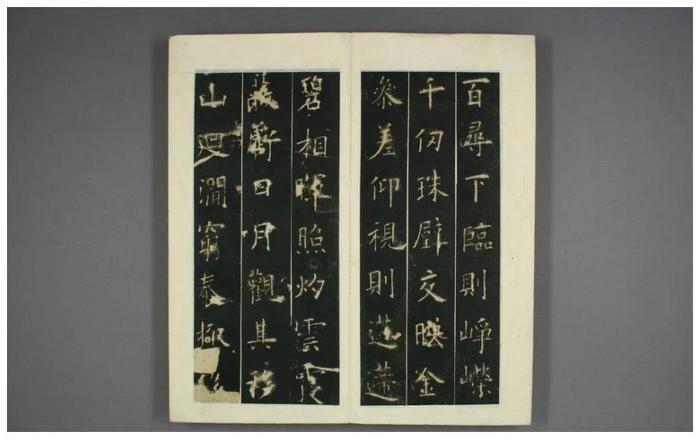 百尋下臨則崢嶸
千仞珠壁交暎金
參差仰視則迢遰
碧相暉照灼雲霞
蔽虧日月觀其移
山迴澗窮泰極侈